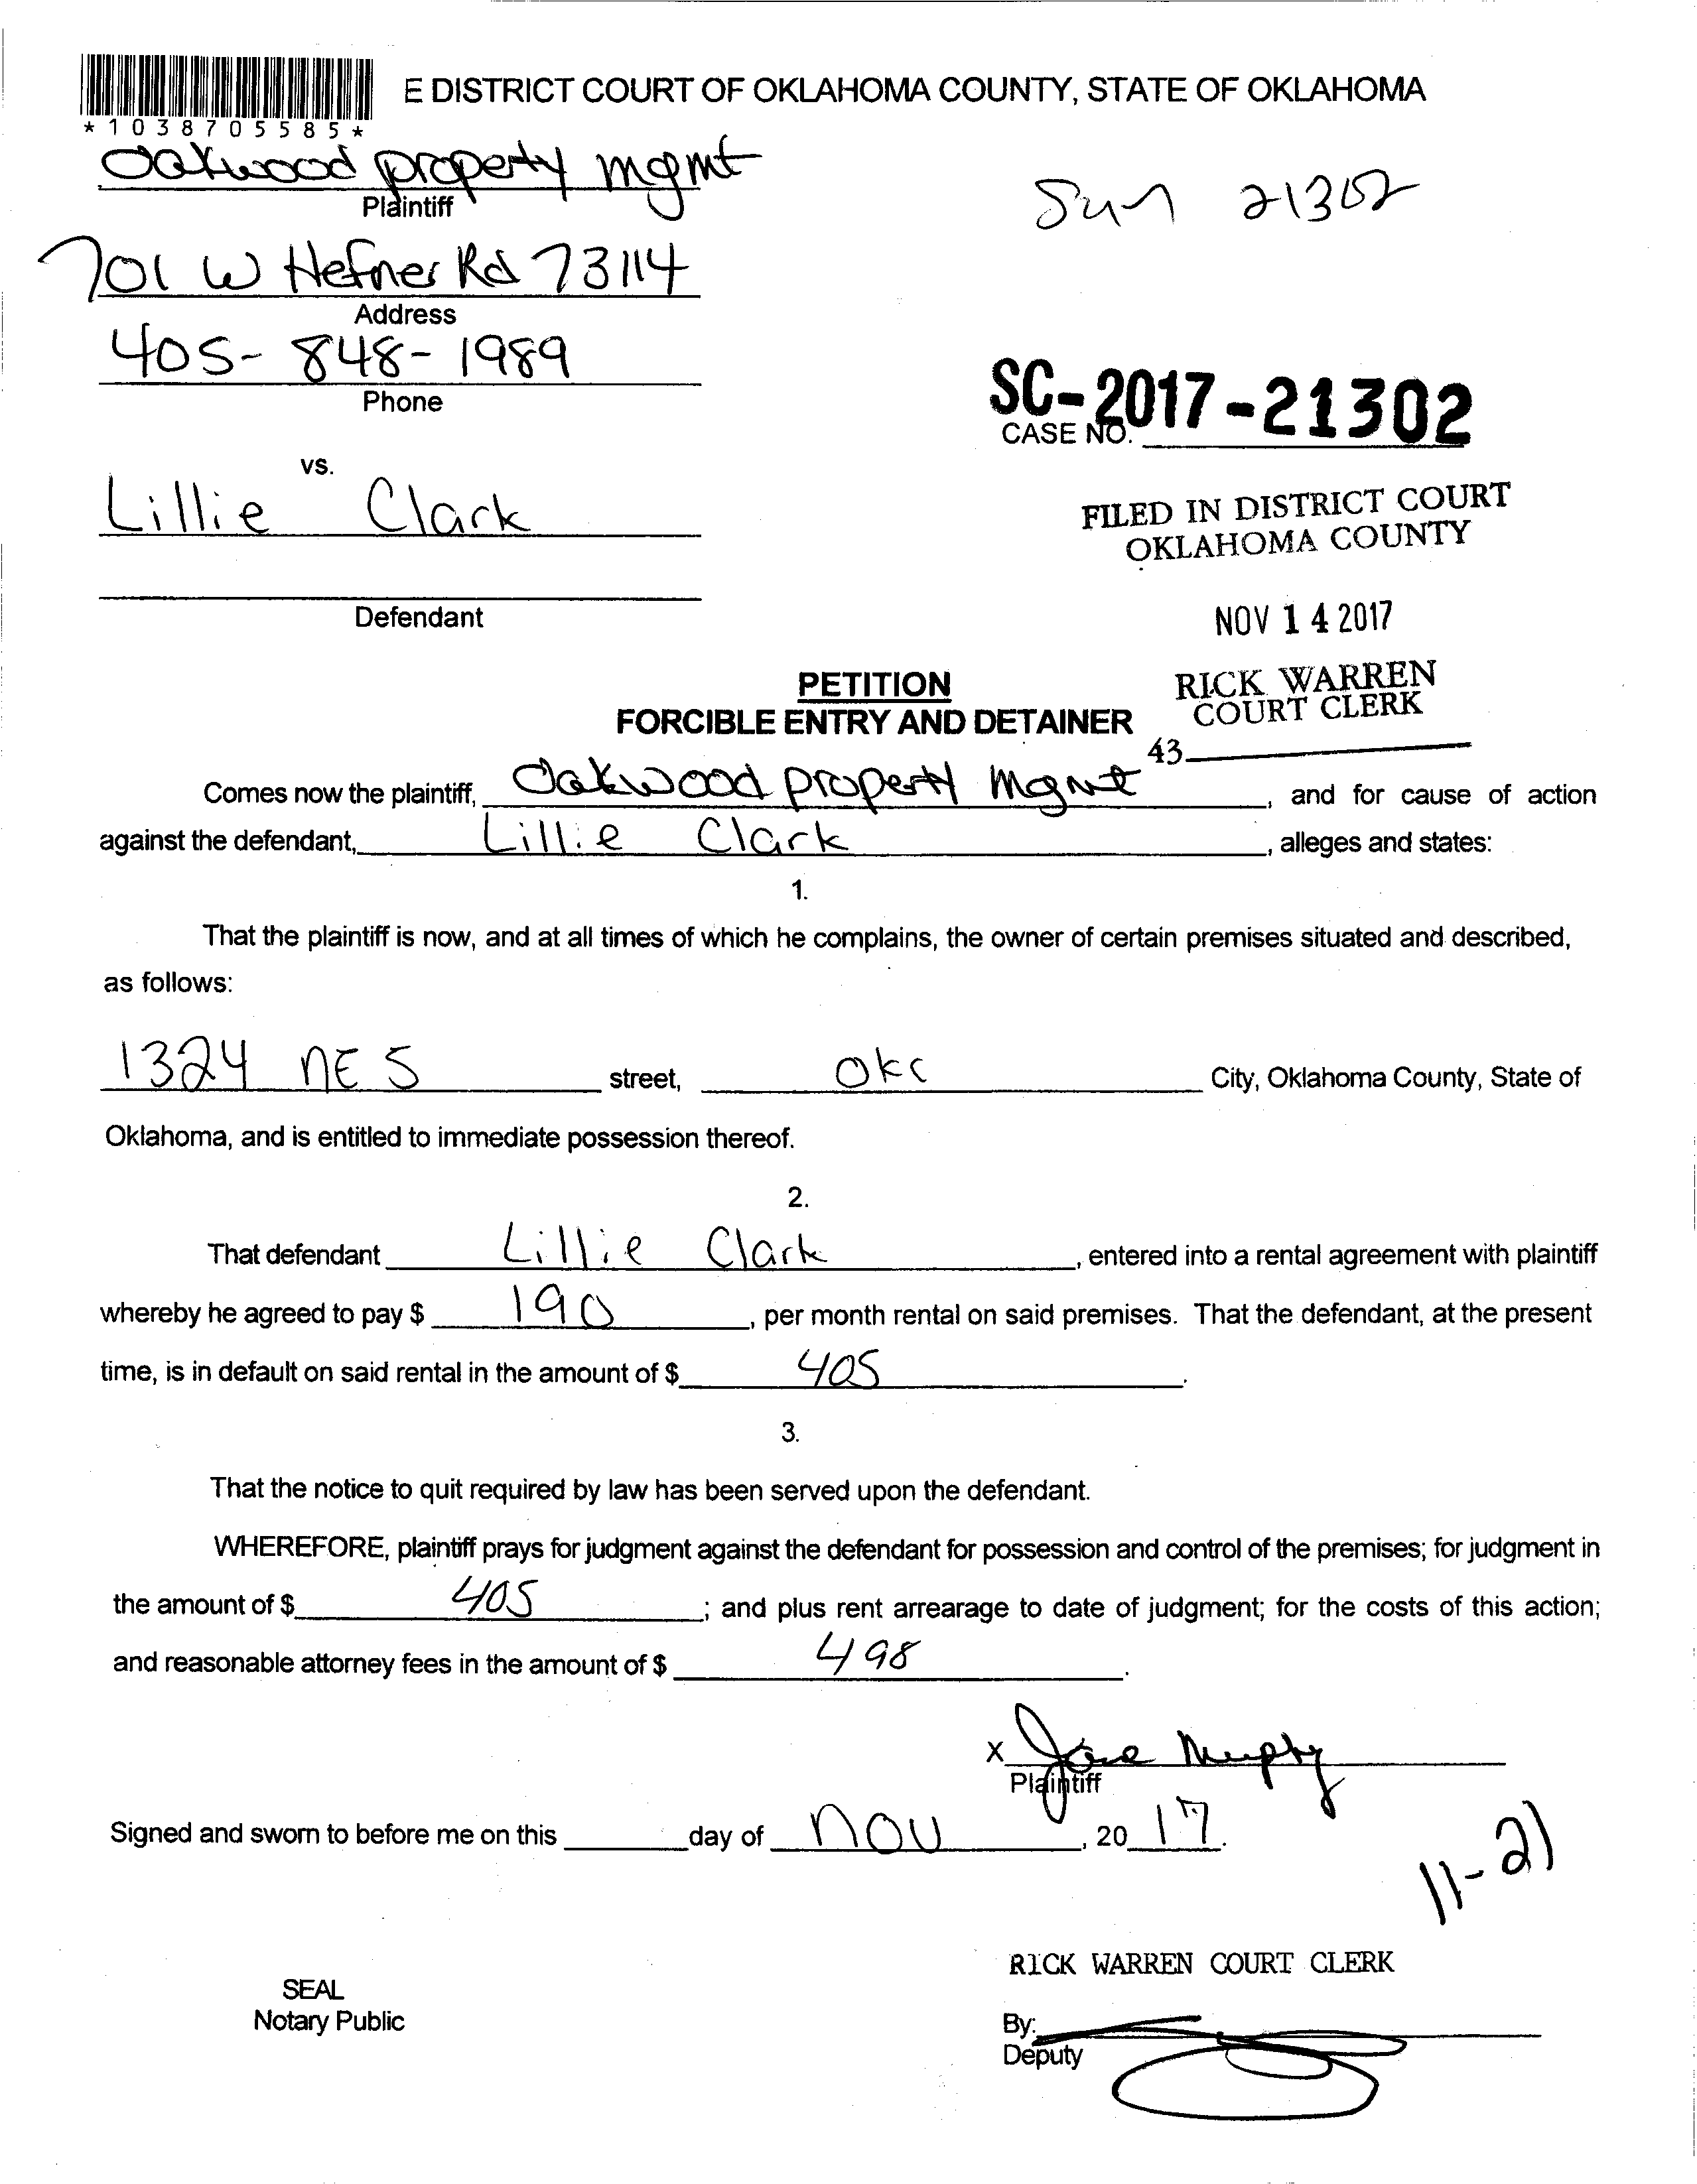 E DISTRICT COURT OF OKLAHOMA COUNTY, STATE OF OKLAHOMA
*1038705585*
Oakwood property mgmt
Plaintiff
21302
701 W Hefner Rd 73114
Address
405-848-1989
Phone
SC-2017-21302
CASE NO.
vs.
Lillie Clark
FILED IN DISTRICT COURT
OKLAHOMA COUNTY
Defendant
NOV 14 2017
PETITION
RICK WARREN
COURT CLERK
FORCIBLE ENTRY AND DETAINER
43
Comes now the plaintiff, Oakwood property Mgmt, and for cause of action
against the defendant, Lillie Clark, alleges and states:
1.
That the plaintiff is now, and at all times of which he complains, the owner of certain premises situated and described,
as follows:
1324 NE 5 street, OKC City, Oklahoma County, State of
Oklahoma, and is entitled to immediate possession thereof.
2.
That defendant Lillie Clark, entered into a rental agreement with plaintiff
whereby he agreed to pay $ 190, per month rental on said premises. That the defendant, at the present
time, is in default on said rental in the amount of $ 405.
3.
That the notice to quit required by law has been served upon the defendant.
WHEREFORE, plaintiff prays for judgment against the defendant for possession and control of the premises; for judgment in
the amount of $ 405; and plus rent arrearage to date of judgment; for the costs of this action;
and reasonable attorney fees in the amount of $ 498.
X Murphy
Plaintiff
Signed and sworn to before me on this day of NOV, 20 17.
11-21
RICK WARREN COURT CLERK
SEAL
Notary Public
By:
Deputy